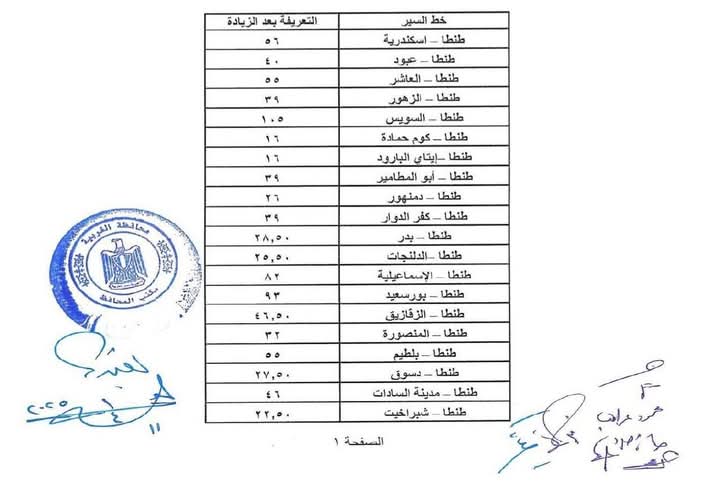 خط السير التعريفة بعد الزيادة
طنطا – اسكندرية ٥٦
طنطا – عبود ٤٠
طنطا – العاشر ٥٥
طنطا – الزهور ٣٩
طنطا – السويس ١٠٥
طنطا – كوم حمادة ١٦
طنطا – إيتاي البارود ١٦
طنطا – أبو المطامير ٣٩
طنطا – دمنهور ٢٦
طنطا – كفر الدوار ٣٩
طنطا – بدر ٢٨,٥٠
طنطا – الدلنجات ٢٥,٥٠
طنطا – الإسماعيلية ٨٢
طنطا – بورسعيد ٩٣
طنطا – الزقازيق ٤٦,٥٠
طنطا – المنصورة ٣٢
طنطا – بلطيم ٥٥
طنطا – دسوق ٢٧,٥٠
طنطا – مدينة السادات ٤٦
طنطا – شبراخيت ٢٢,٥٠
الصفحة ١
محافظة الغربية
مكتب المحافظ
١١ ٤ ٢٠٢٥